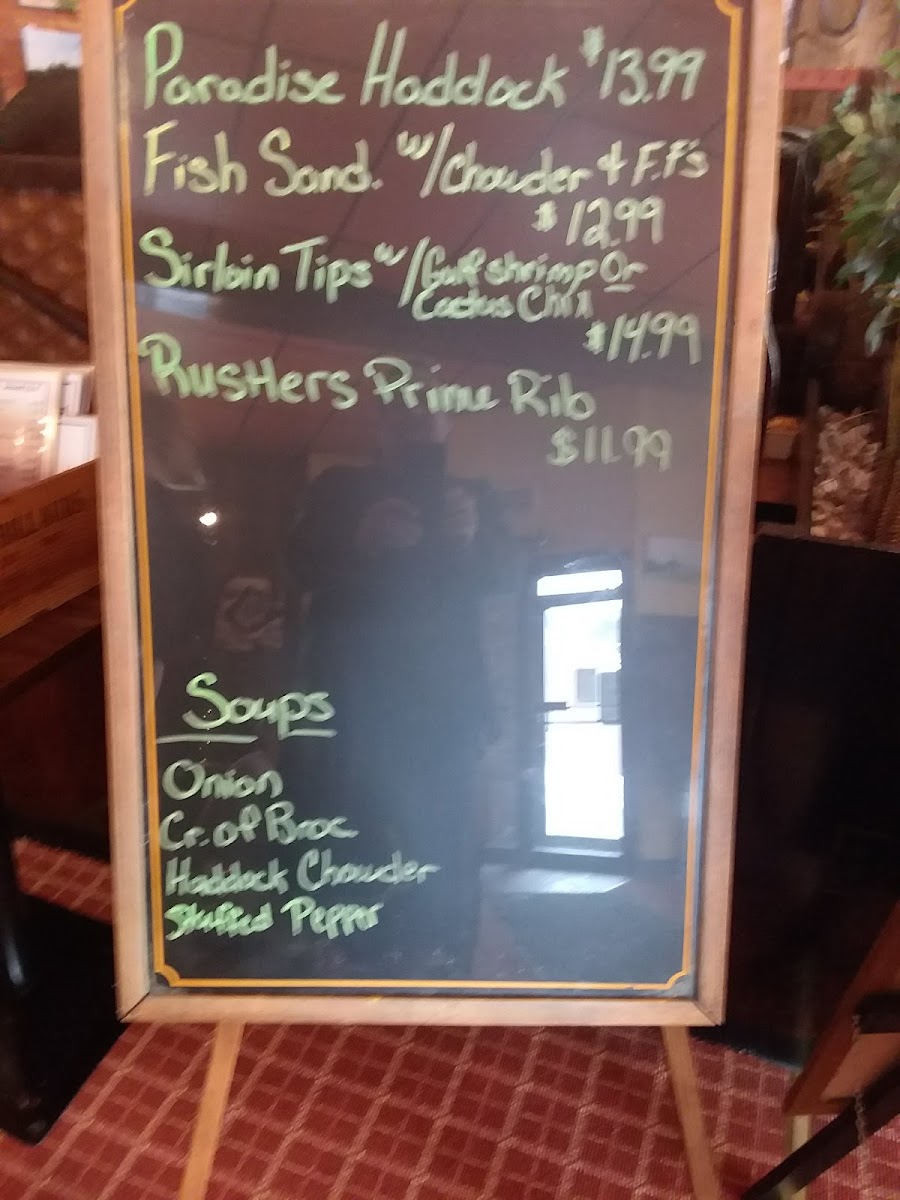 Paradise Haddock $13.99
Fish Sand. w/Chowder & F.F's
$12.99
Sirloin Tips w/Gulf shrimp Or
Cactus Chix
$14.99
Rustlers Prime Rib
$11.99
Soups
Onion
Cr. of Broc
Haddock Chowder
Stuffed Pepper